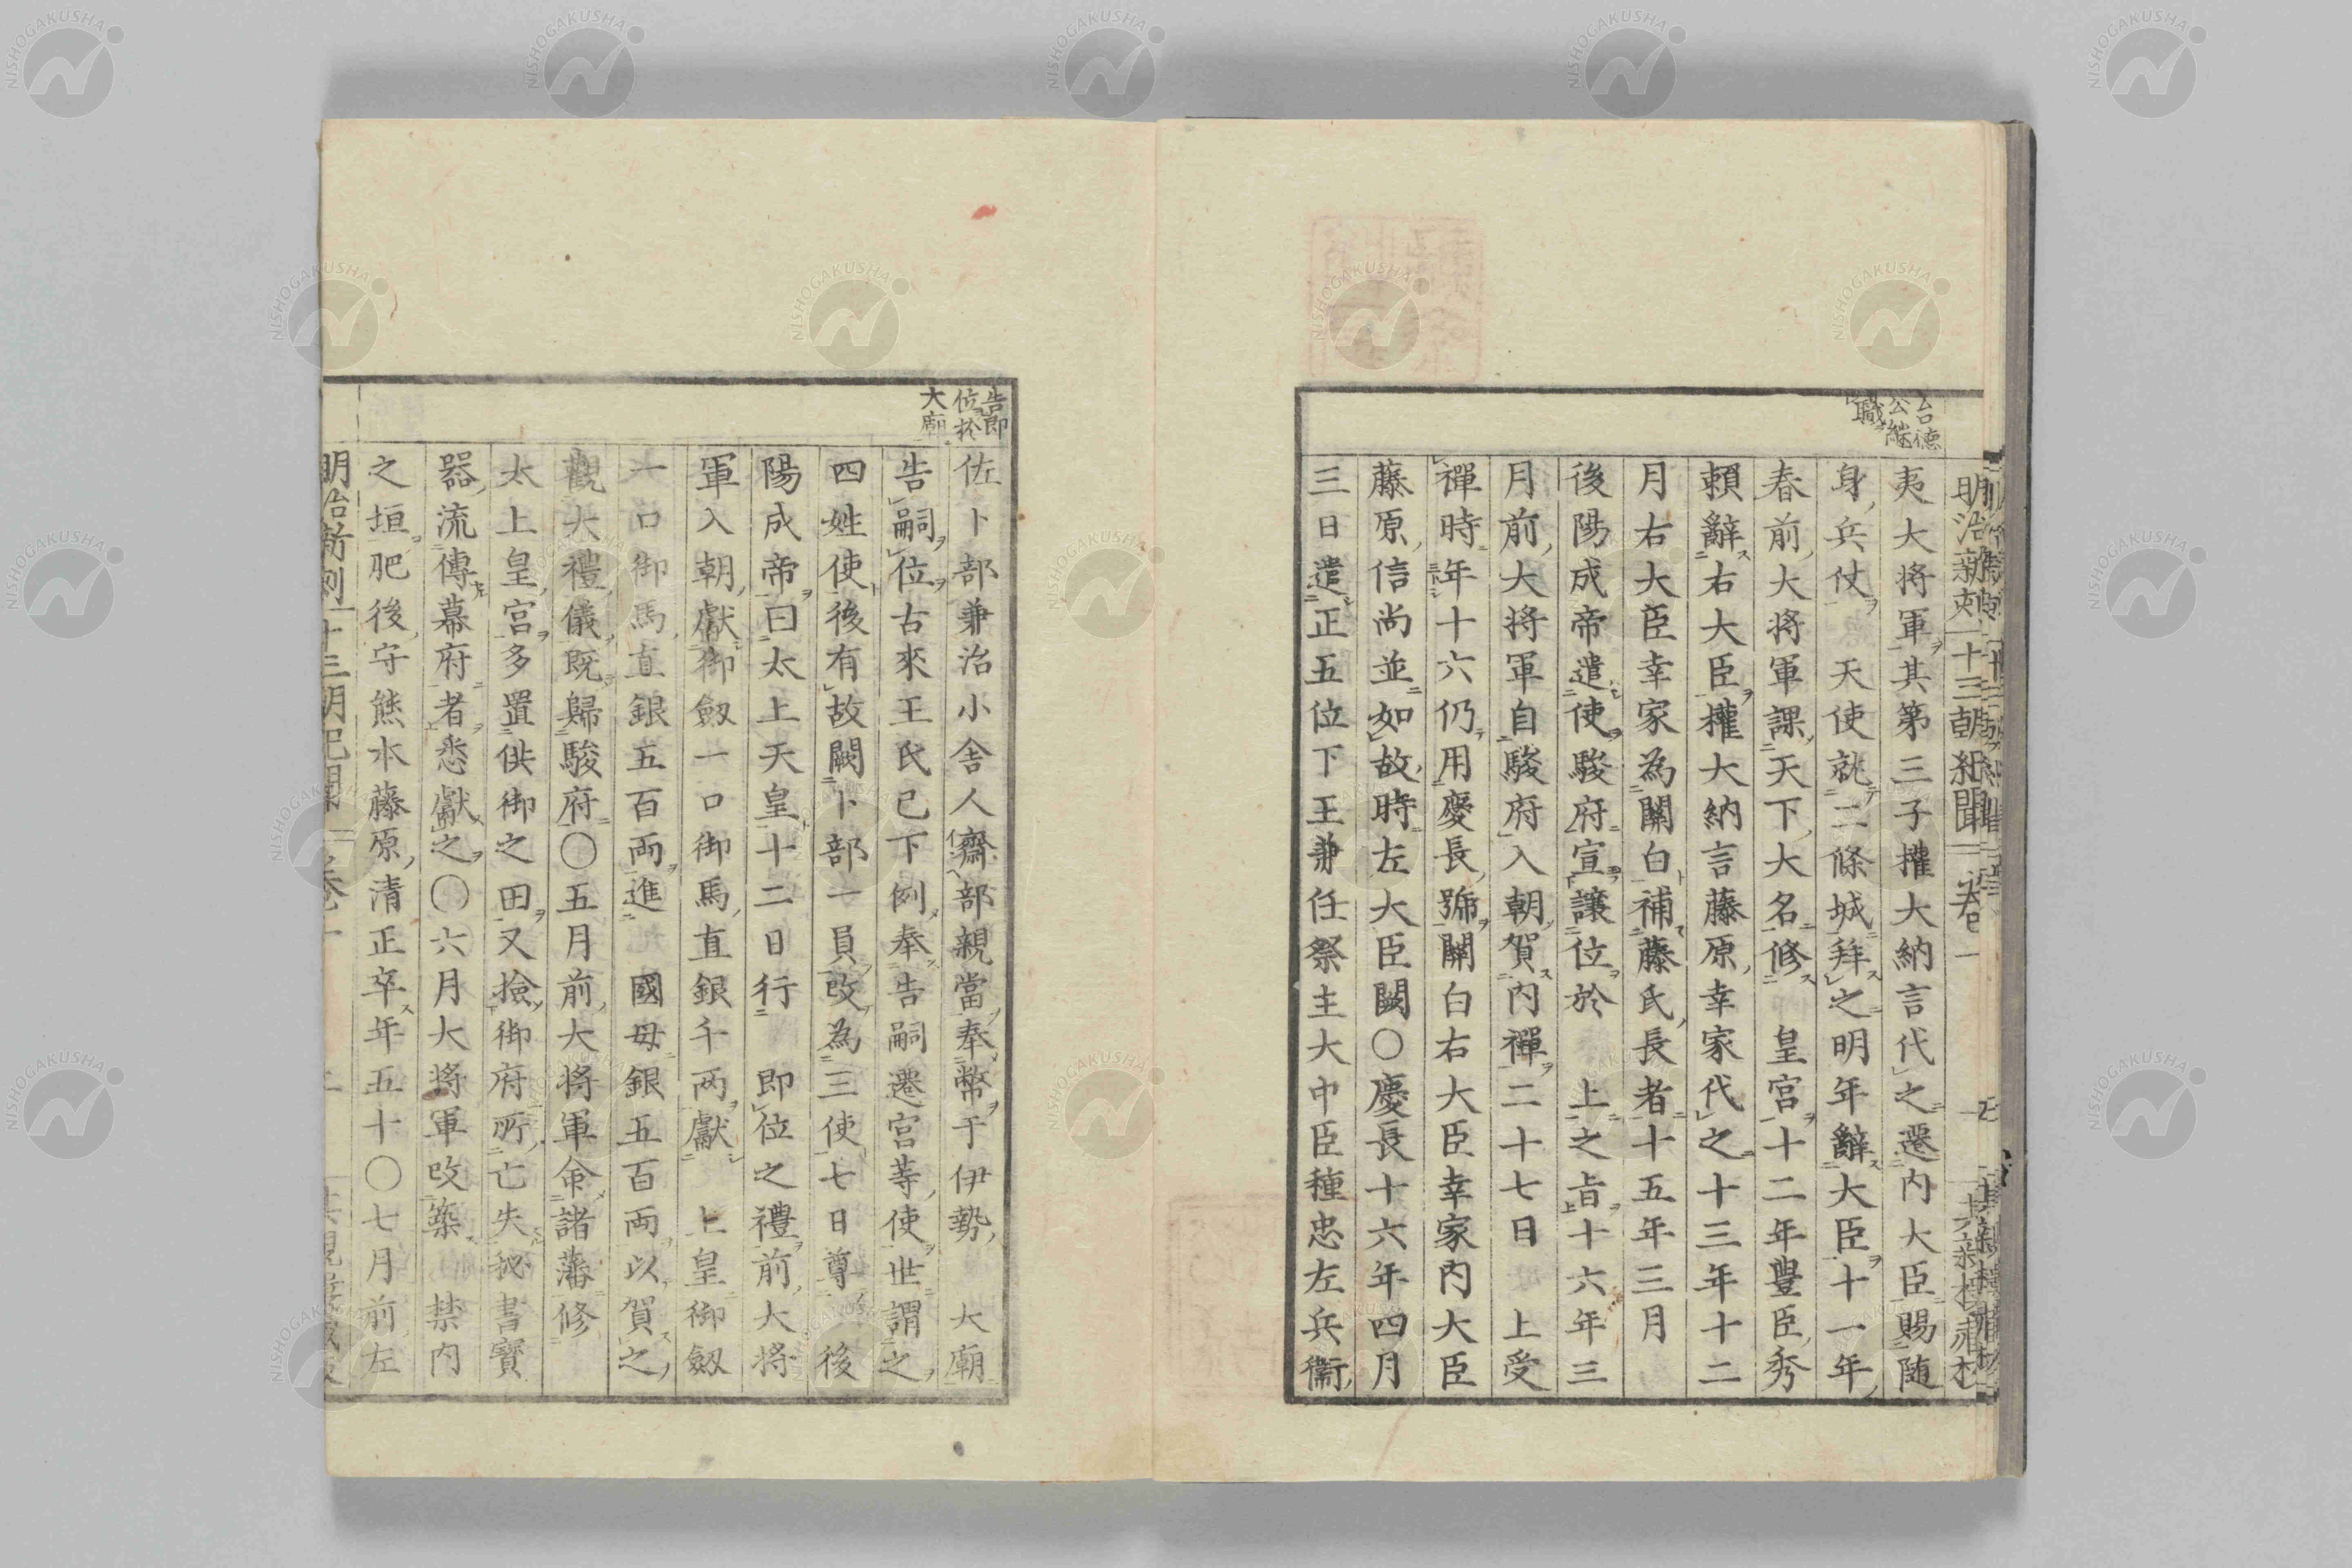 台德
公継
職
明治新刻 十三朝紀聞 卷一
夷大将軍其第三子權大納言代之遷内大臣賜随
身兵仗 天使就二條城拜之明年辭大臣十一年
春前大将軍課天下大名修 皇宮十二年豐臣秀
賴辭右大臣權大納言藤原幸家代之十三年十二
月右大臣幸家為關白補藤氏長者十五年三月
後陽成帝遣使駿府宣讓位於 上之旨十六年三
月前大将軍自駿府入朝賀内禪二十七日 上受
禪時年十六仍用慶長號關白右大臣幸家内大臣
藤原信尚並如故時左大臣闕○慶長十六年四月
三日遣正五位下王兼任祭主大中臣種忠左兵衞
告即
位於
大廟
佐卜部兼治小舍人齋部親當奉幣于伊勢 大廟
告嗣位古來王氏已下例奉告嗣遷宮等使世謂之
四姓使後有故闕卜部一員改為三使七日尊 後
陽成帝曰太上天皇十二日行 即位之禮前大将
軍入朝獻御劔一口御馬直銀千兩獻 上皇御劔
一口御馬直銀五百兩進 國母銀五百兩以賀之
觀大禮儀既歸駿府○五月前大将軍命諸藩修
太上皇宮多置供御之田又撿御府所亡失秘書寶
器流傳幕府者悉獻之○六月大将軍改築 禁内
之垣肥後守熊本藤原清正卒年五十○七月前左
明治新刻 十三朝紀聞 卷一